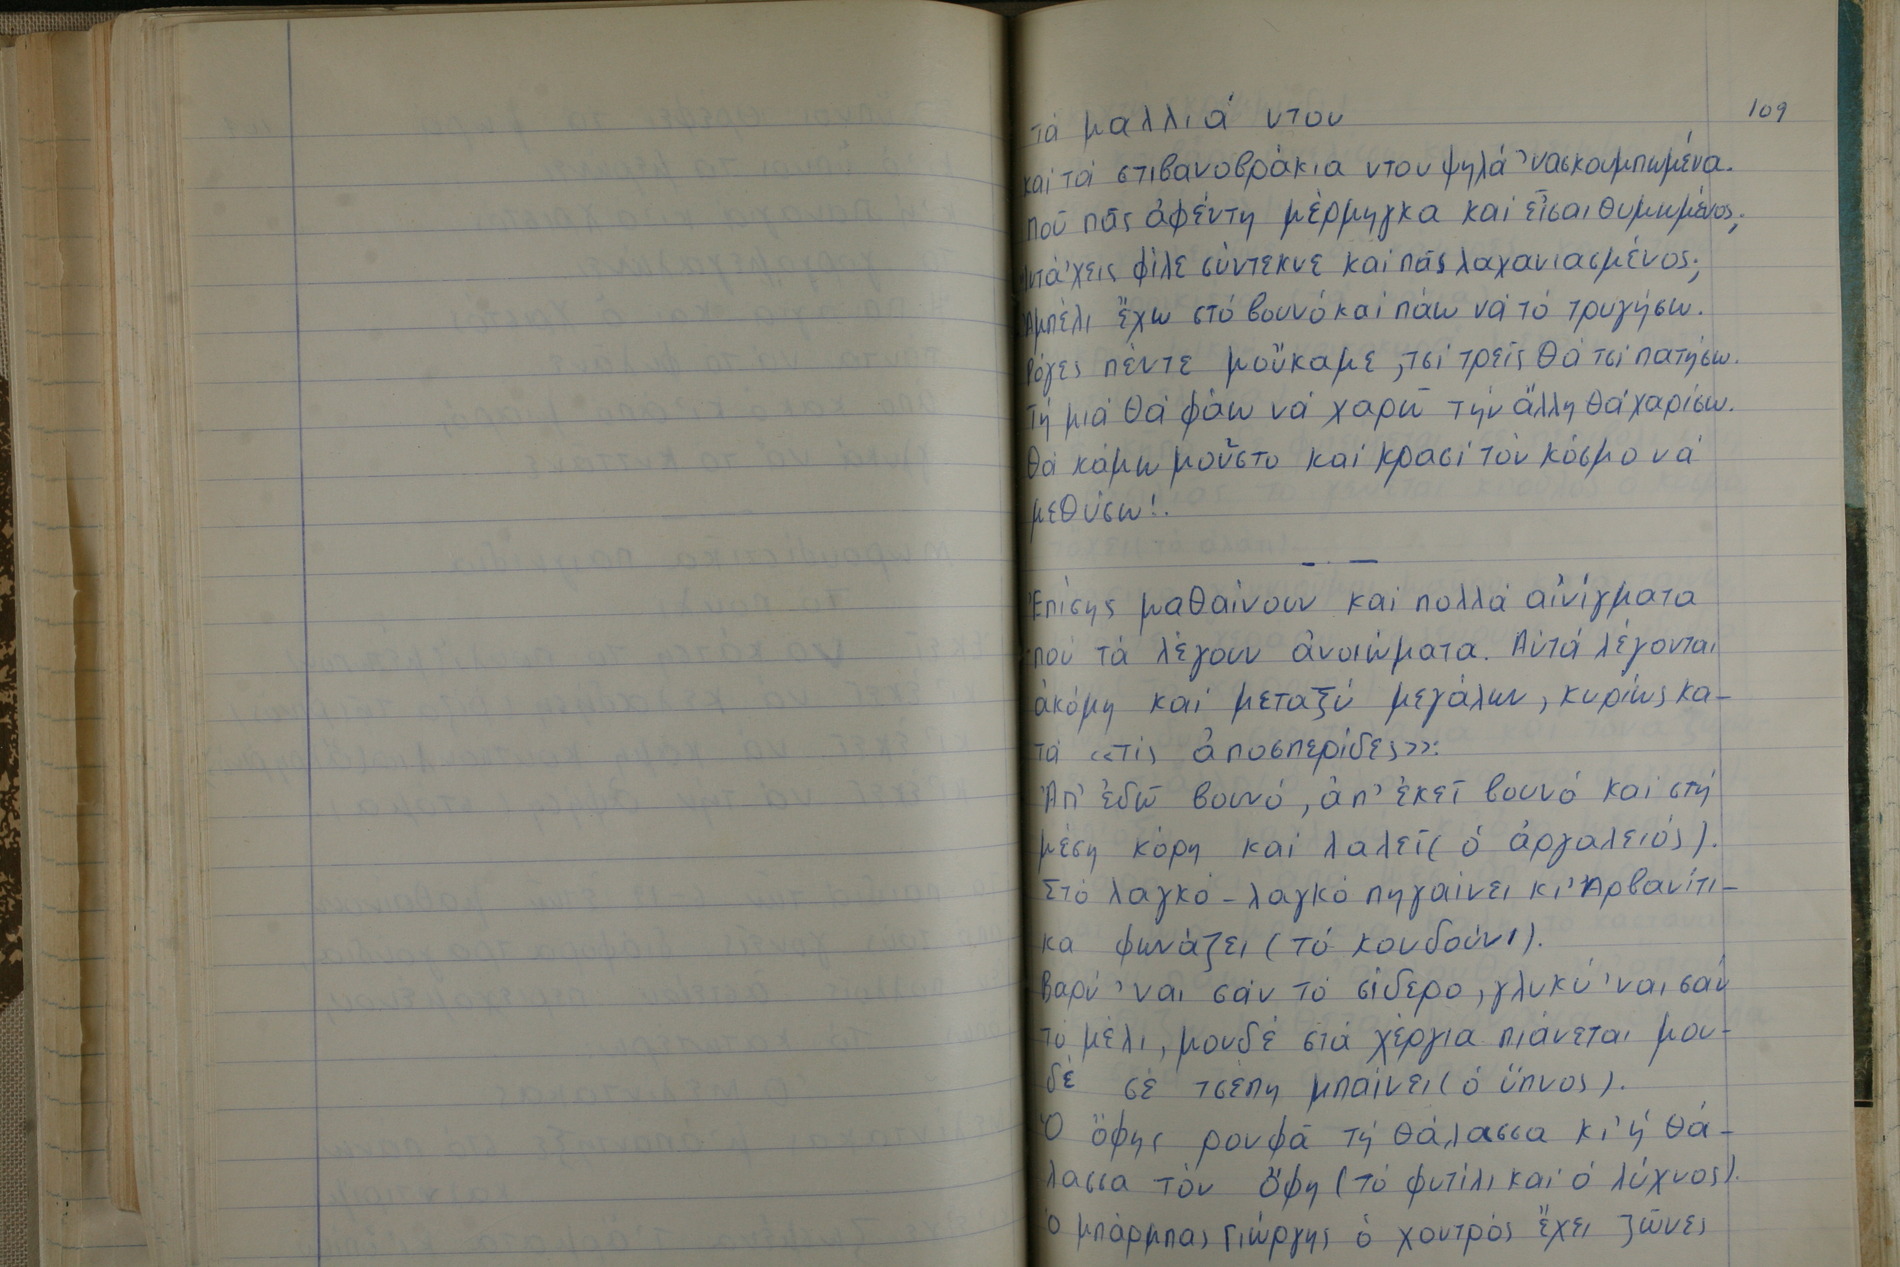 109
τά μαλλιά ντου
καί τά στιβανοβράκια ντου ψηλά 'νασκουμπωμένα.
Ποῦ πᾶς ἀφέντη μέρμηγκα καί εἶσαι θυμωμένος;
Ιντά'χεις φίλε σύντεκνε καί πᾶς λαχανιασμένος;
Ἀμπέλι ἔχω στό βουνό καί πάω νά τό τρυγήσω.
Ρόγες πέντε μοὔκαμε, τσί τρεῖς θά τσί πατήσω.
Τή μιά θά φάω νά χαρῶ τήν ἄλλη θά χαρίσω.
Θά κάμω μοῦστο καί κρασί τόν κόσμο νά
μεθύσω!.
Ἐπίσης μαθαίνουν καί πολλά αἰνίγματα
πού τά λέγουν ἀνοιώματα. Αὐτά λέγονται
ἀκόμη καί μεταξύ μεγάλων, κυρίως κα-
τά «τίς ἀποσπερίδες»:
Ἀπ' ἐδῶ βουνό, ἀπ' ἐκεῖ βουνό καί στή
μέση κόρη καί λαλεῖ (ὁ ἀργαλειός).
Στό λαγκό-λαγκό πηγαίνει κι' Ἀρβανίτι-
κα φωνάζει (τό κουδούνι).
Βαρύ 'ναι σάν τό σίδερο, γλυκύ 'ναι σάν
τό μέλι, μουδέ στά χέργια πιάνεται μου-
δέ σέ τσέπη μπαίνει (ὁ ὕπνος).
Ὁ ὄφης ρουφᾶ τή θάλασσα κι' ἡ θά-
λασσα τόν ὄφη (τό φυτίλι καί ὁ λύχνος).
Ὁ μπάρμπας Γιώργης ὁ χοντρός ἔχει ζῶνες